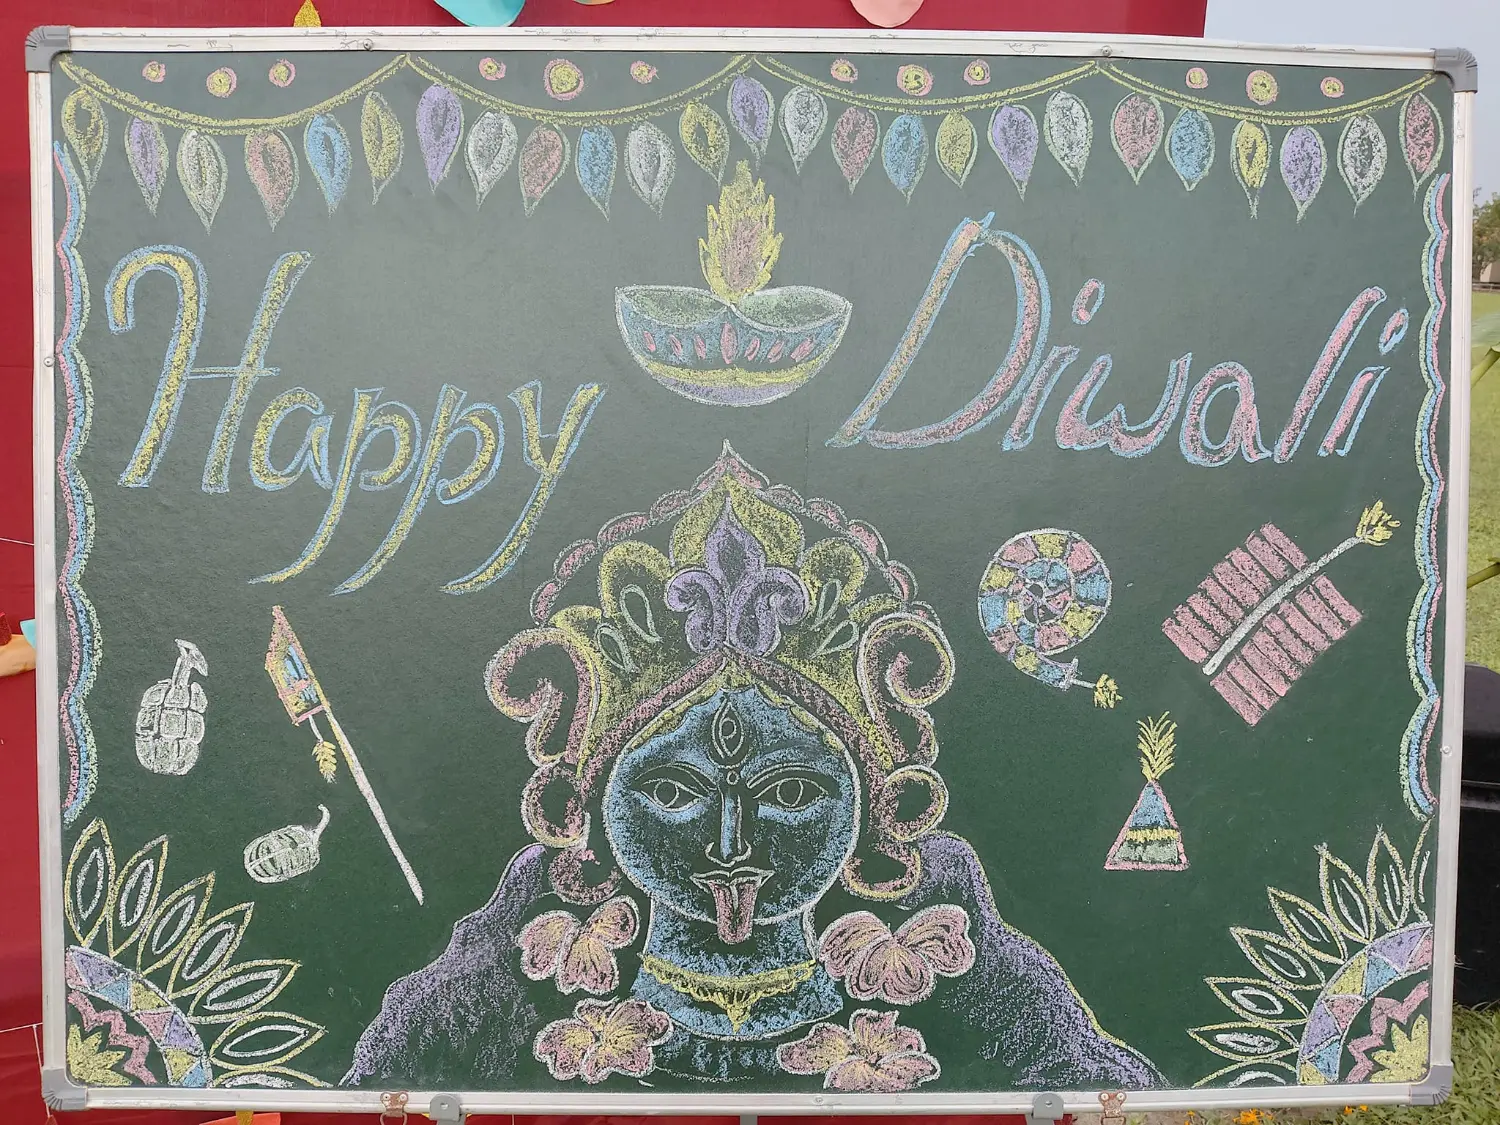 Happy Diwali